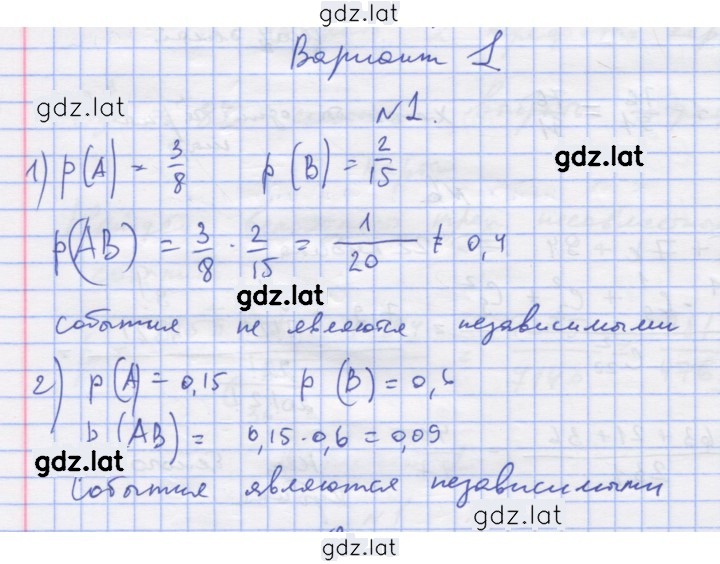 gdz.lat
Вариант 1
gdz.lat
N1.
1) p(A) = 3/8 p(B) = 2/15
gdz.lat
p(AB) = 3/8 · 2/15 = 1/20 ≠ 0,4
gdz.lat
события не являются независимыми
2) p(A) = 0,15 p(B) = 0,6
p(AB) = 0,15 · 0,6 = 0,09
gdz.lat
События являются независимыми
gdz.lat
gdz.lat